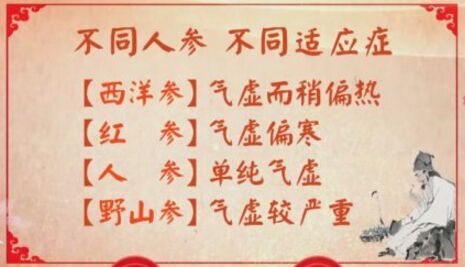 不同人参 不同适应症
【西洋参】气虚而稍偏热
【红 参】气虚偏寒
【人 参】单纯气虚
【野山参】气虚较严重